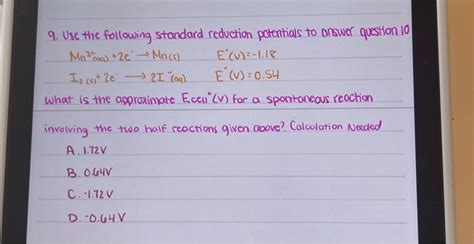 9. Use the following standard reduction potentials to answer question 10
Mn²⁺(aq) + 2e⁻ → Mn(s) E°(V)=-1.18
I₂(s) + 2e⁻ → 2I⁻(aq) E°(V)=0.54
What is the approximate Ecell°(V) for a spontaneous reaction
involving the two half reactions given above? Calculation Needed
A. 1.72V
B. 0.64V
C. -1.72V
D. -0.64V